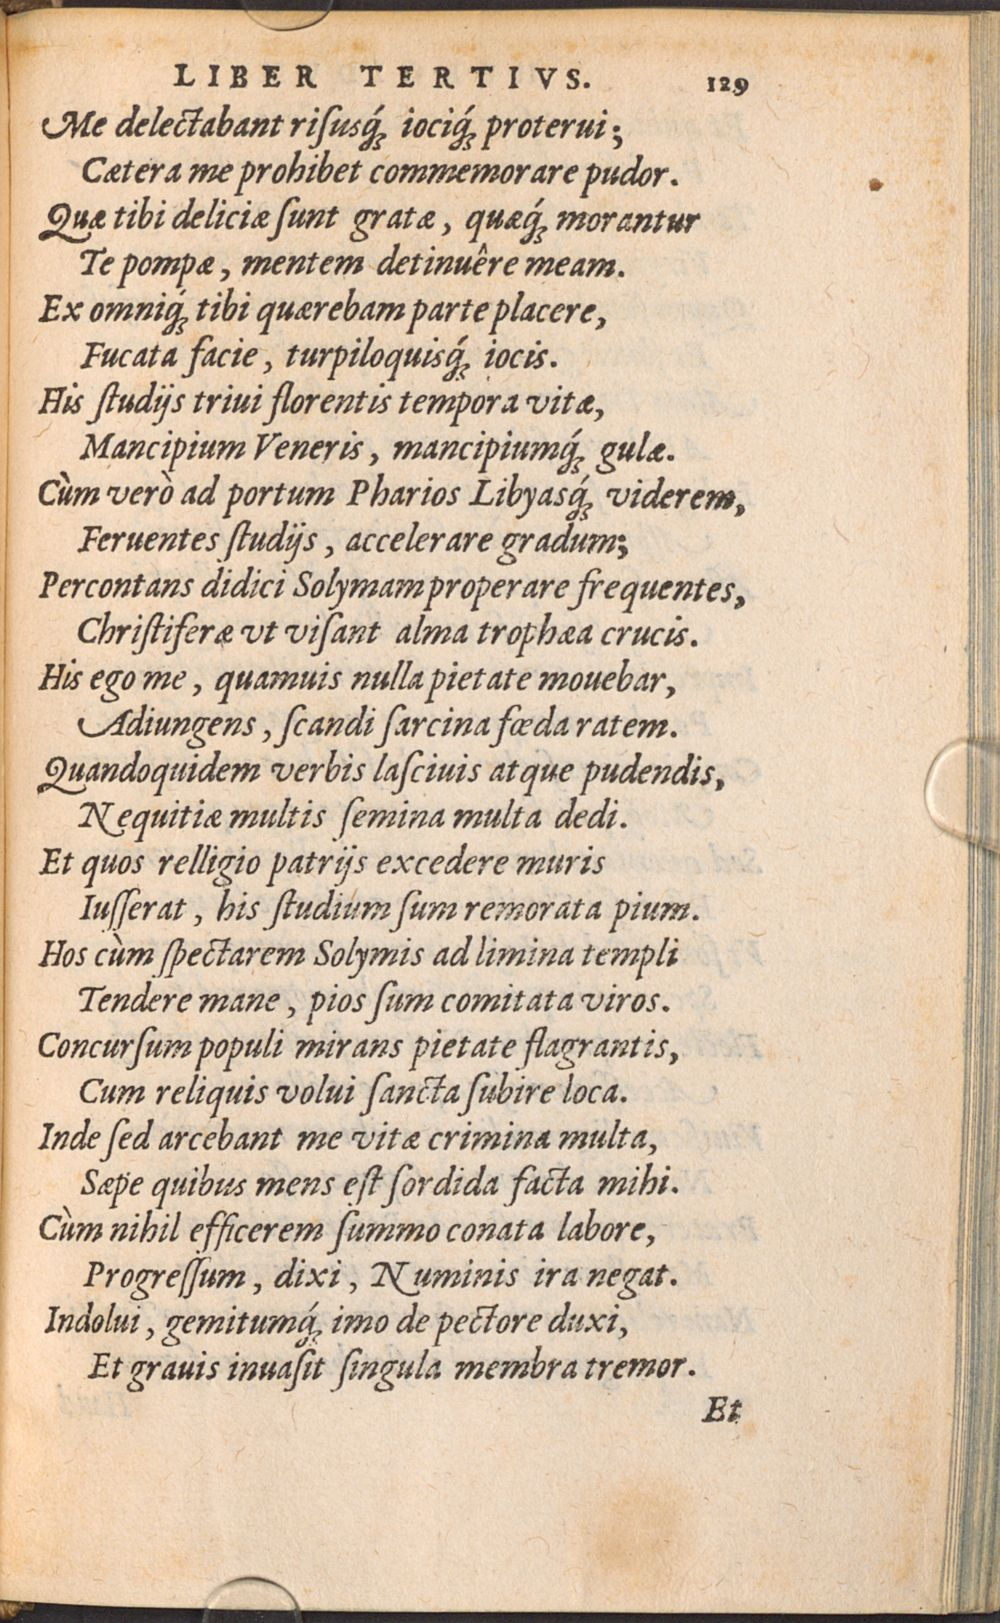 LIBER TERTIVS. 129
Me delectabant riſusq́; iociq́; proterui;
Cætera me prohibet commemorare pudor.
Quæ tibi deliciæ ſunt gratæ, quæq́; morantur
Te pompæ, mentem detinuêre meam.
Ex omniq́; tibi quærebam parte placere,
Fucata facie, turpiloquisq́; iocis.
His ſtudijs triui florentis tempora vitæ,
Mancipium Veneris, mancipiumq́; gulæ.
Cùm verò ad portum Pharios Libyasq́; viderem,
Feruentes ſtudijs, accelerare gradum;
Percontans didici Solymam properare frequentes,
Chriſtiferæ vt viſant alma trophæa crucis.
His ego me, quamuis nulla pietate mouebar,
Adiungens, ſcandi ſarcina fœda ratem.
Quandoquidem verbis laſciuis atque pudendis,
Nequitiæ multis ſemina multa dedi.
Et quos relligio patrijs excedere muris
Iuſſerat, his ſtudium ſum remorata pium.
Hos cùm ſpectarem Solymis ad limina templi
Tendere mane, pios ſum comitata viros.
Concurſum populi mirans pietate flagrantis,
Cum reliquis volui ſancta ſubire loca.
Inde ſed arcebant me vitæ crimina multa,
Sæpe quibus mens eſt ſordida facta mihi.
Cùm nihil efficerem ſummo conata labore,
Progreſſum, dixi, Numinis ira negat.
Indolui, gemitumq́; imo de pectore duxi,
Et grauis inuaſit ſingula membra tremor.
Et